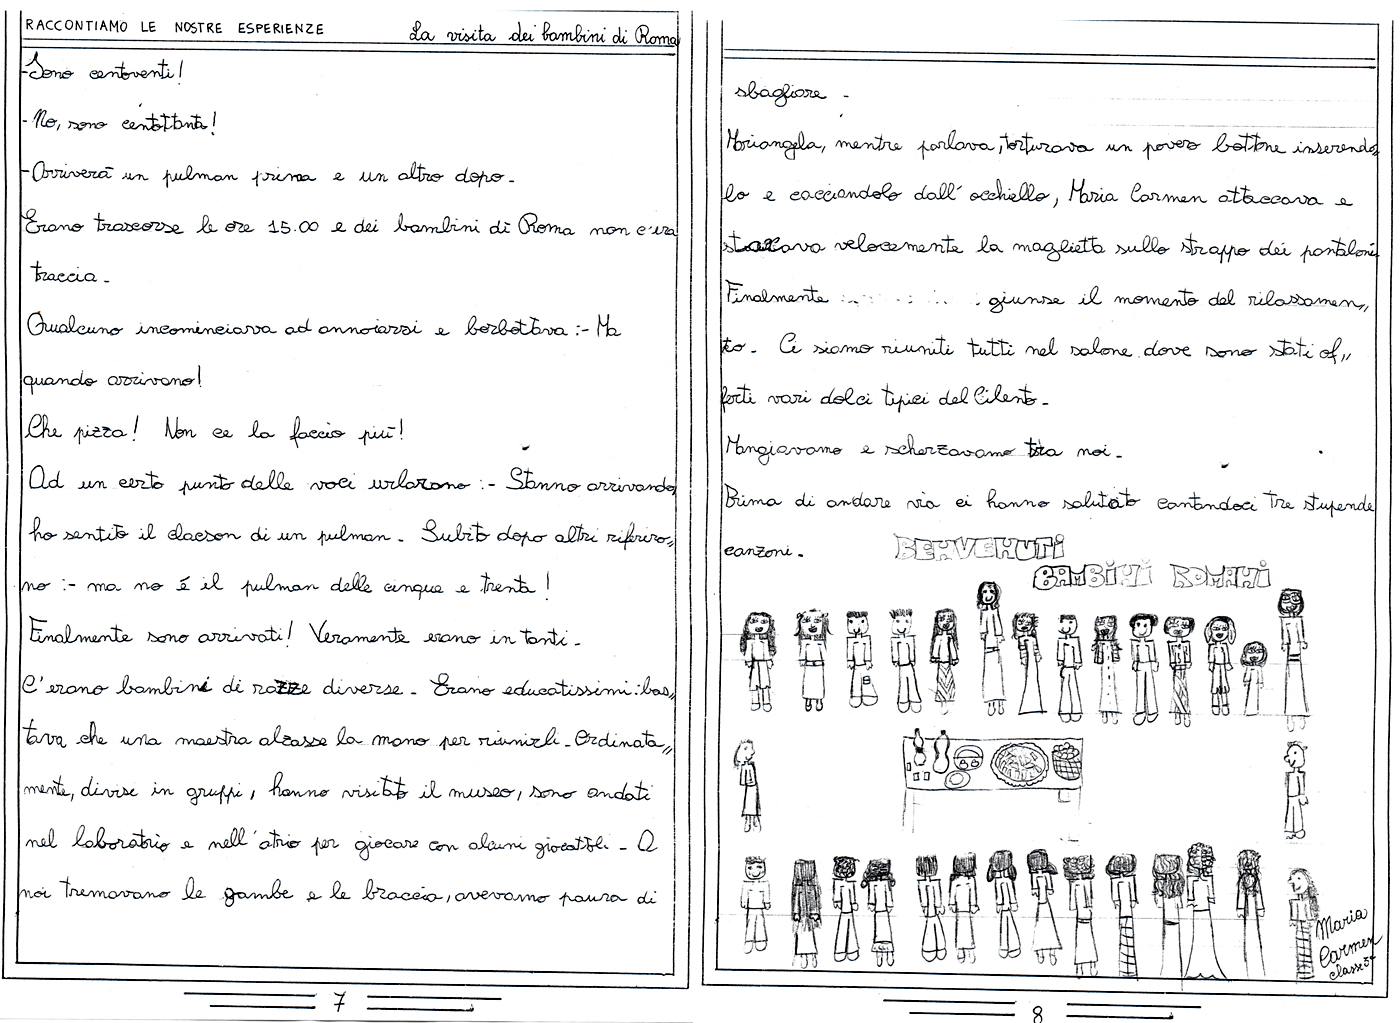 RACCONTIAMO LE NOSTRE ESPERIENZE
La visita dei bambini di Roma
-Sono centoventi!
-No, sono centottanta!
-Arriverà un pulman prima e un altro dopo.
Erano trascorse le ore 15.00 e dei bambini di Roma non c'era
traccia.
Qualcuno incominciava ad annoiarsi e borbottava:- Ma
quando arrivano!
Che pizza! Non ce la faccio più!
Ad un certo punto delle voci urlarono:- Stanno arrivando,
ho sentito il clacson di un pulman. Subito dopo altri riferiro,,
no:- ma no é il pulman delle cinque e trenta!
Finalmente sono arrivati! Veramente erano in tanti.
C'erano bambini di razze diverse. Erano educatissimi: bas,,
tava che una maestra alzasse la mano per riunirli. Ordinata,,
mente, divisi in gruppi, hanno visitato il museo, sono andati
nel laboratorio e nell'atrio per giocare con alcuni giocattoli. A
noi tremavano le gambe e le braccia, avevamo paura di
7
sbagliare.
Mariangela, mentre parlava, torturava un povero bottone inserendo,,
lo e cacciandolo dall'occhiello, Maria Carmen attaccava e
staccava velocemente la maglietta sullo strappo dei pantaloni.
Finalmente giunse il momento del rilassamen,,
to. Ci siamo riuniti tutti nel salone dove sono stati of,,
ferti vari dolci tipici del Cilento.
Mangiavamo e scherzavamo tra noi.
Prima di andare via ci hanno salutato cantandoci tre stupende
canzoni.
BENVENUTI
BAMBINI ROMANI
Maria
Carmen
classe 5ª
8